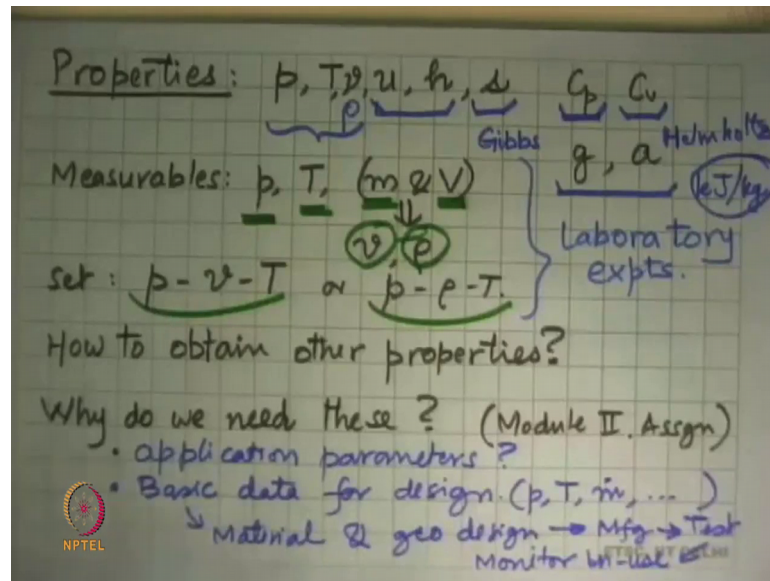 Properties: p, T, v, u, h, s Cp Cv
ρ
Gibbs g, a Helmholtz
Measurables: p, T, (m & V) kJ/kg
⇓
v, ρ
Laboratory
expts.
Set: p - v - T or p - ρ - T.
How to obtain other properties?
Why do we need these? (Module II. Assgn)
• application parameters?
• Basic data for design. (p, T, ṁ, ... )
↳ Material & geo design → Mfg → Test
Monitor in-use ←
NPTEL